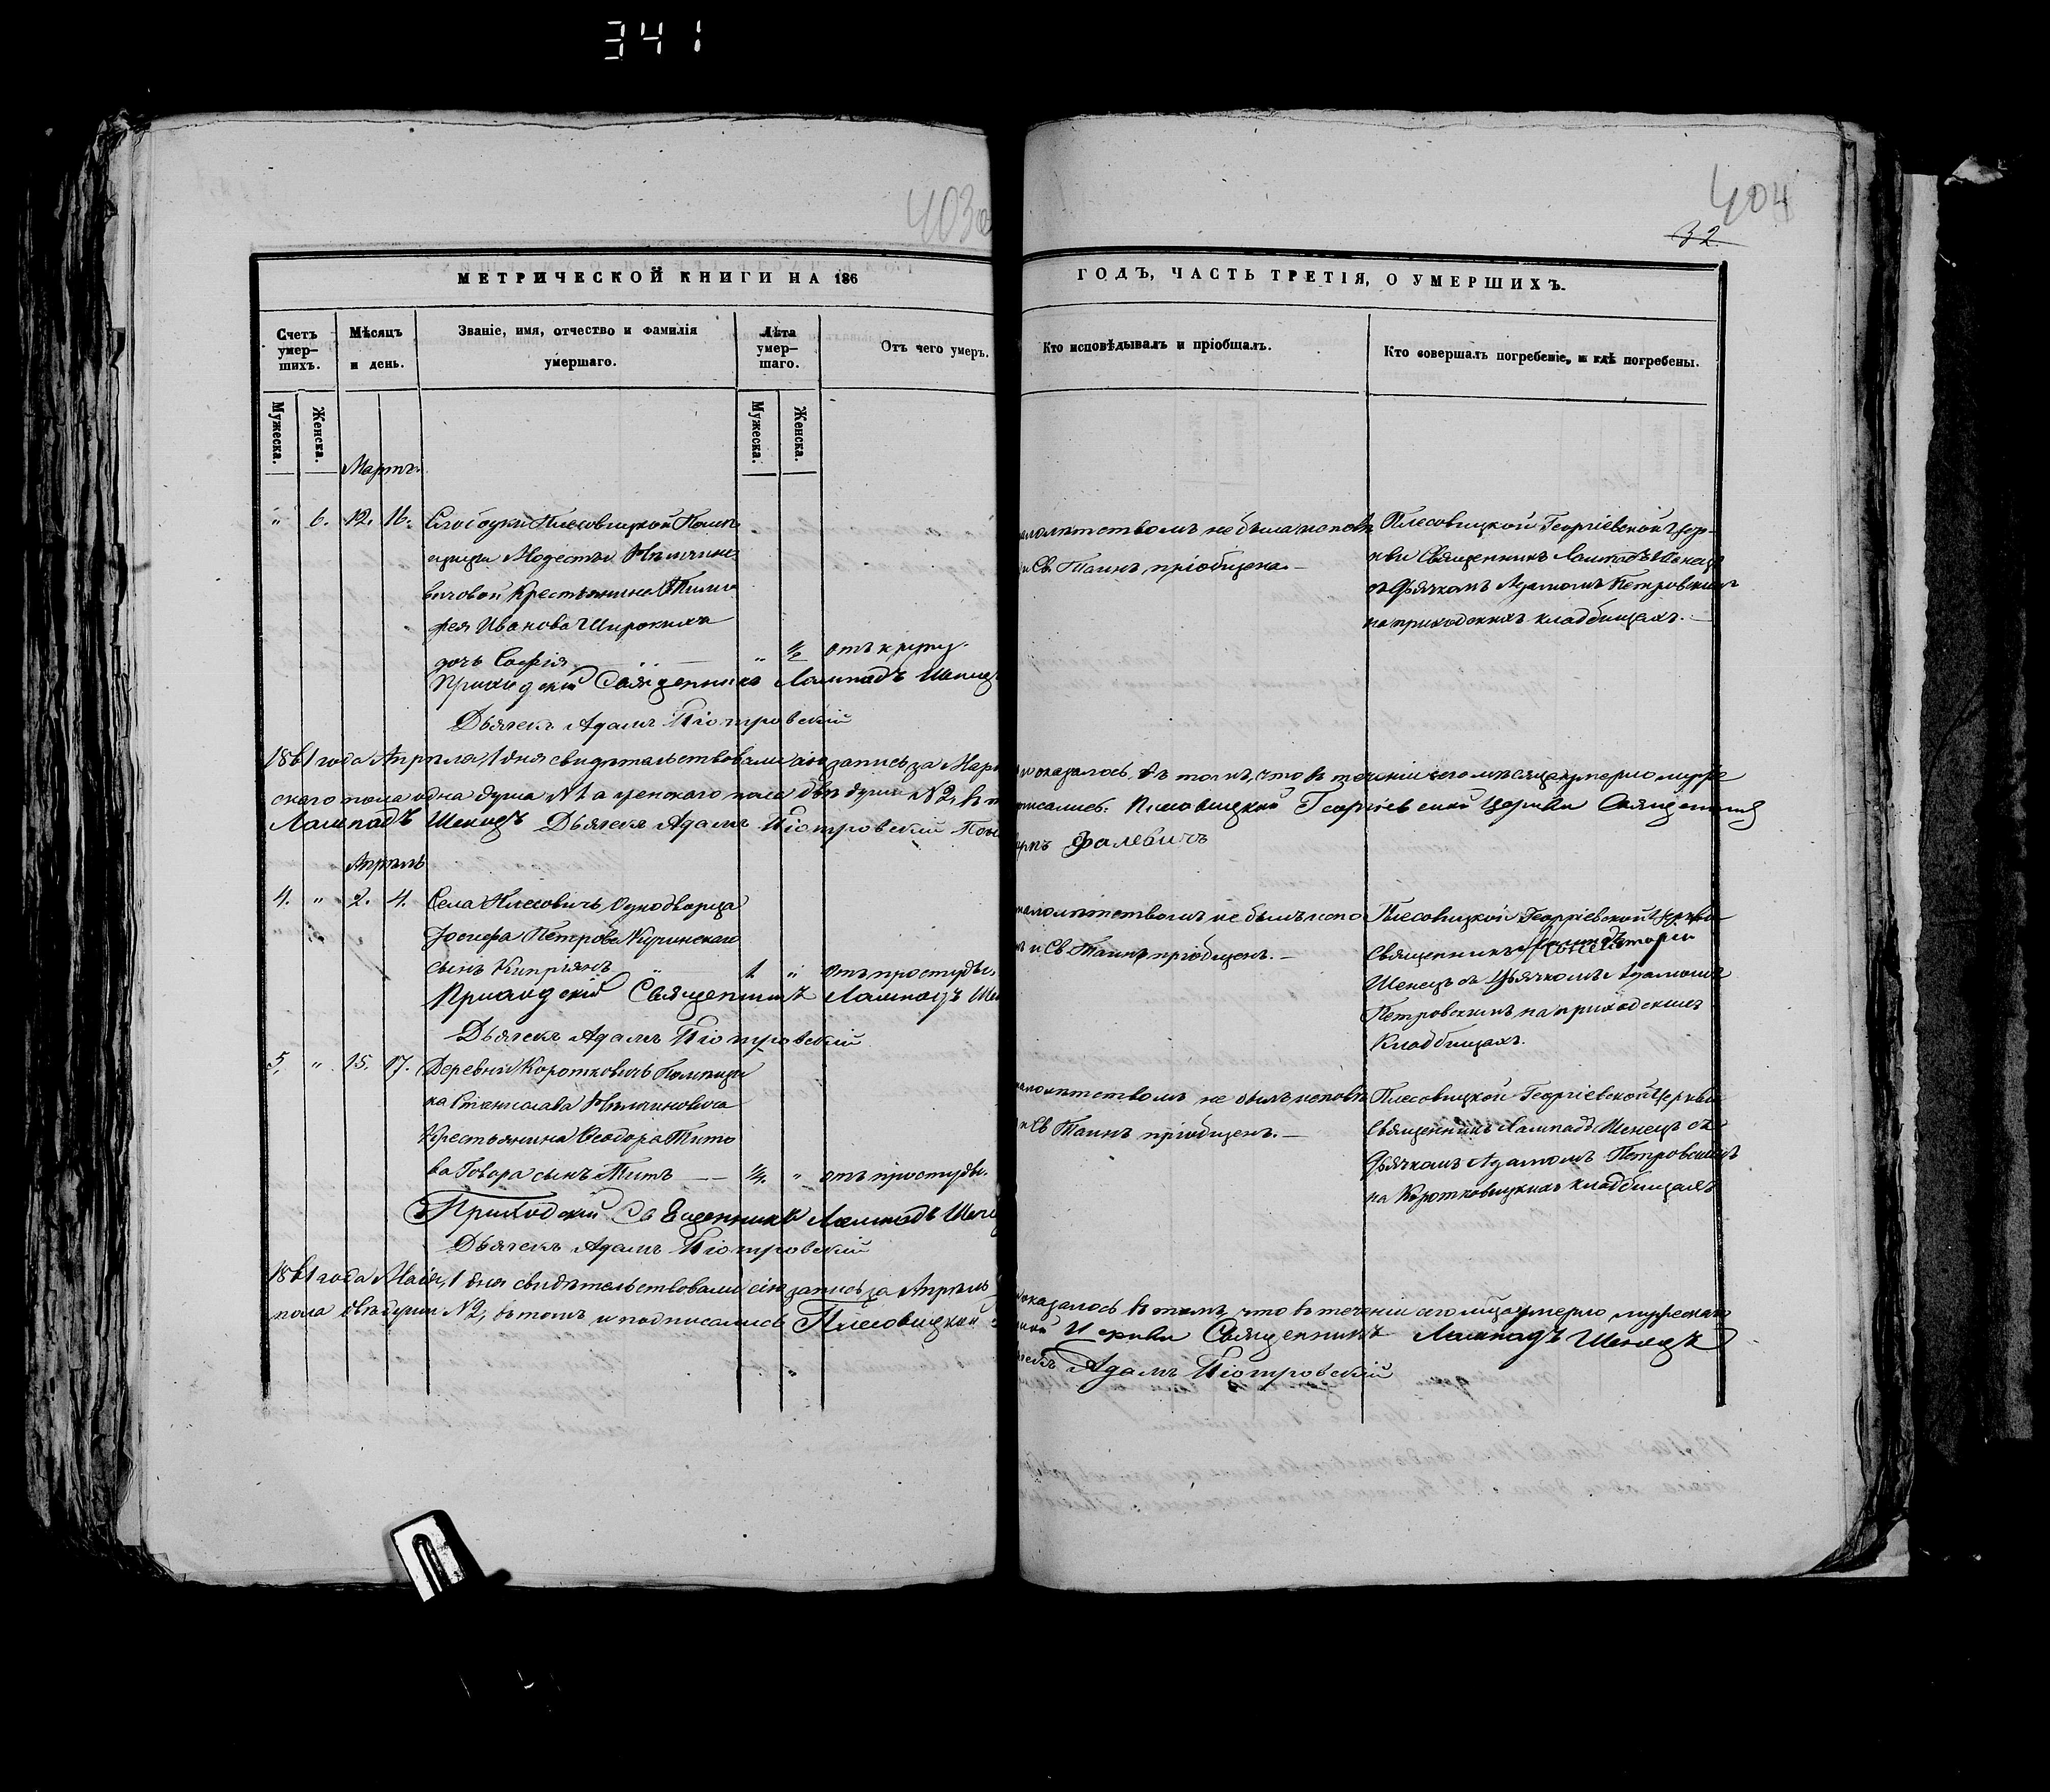 341
403об
404
32
МЕТРИЧЕСКОЙ КНИГИ НА 186
ГОДЪ, ЧАСТЬ ТРЕТІЯ, О УМЕРШИХЪ.
Счетъ умер-шихъ.
Мѣсяцъ и день.
Званіе, имя, отчество и фамилія умершаго.
Лѣта умер-шаго.
Отъ чего умеръ.
Кто исповѣдывалъ и пріобщалъ.
Кто совершалъ погребеніе, и гдѣ погребены.
Мужеска.
Женска.
Мужеска.
Женска.
Мартъ
" 6. 12. 16. Слободки Плесовицкой Помѣ
щицы Модесты
вичовой Крестьянина Тимо
фея Иванова Широкихъ
дочь Софія " ½ отъ крупу.
Приходскій Священникъ Лампадъ Шенец
Дьячекъ Адамъ Піотровскій
малолѣтствомъ не была исповѣ
и Св. Таинъ пріобщена.—
Плесовицкой Георгіевской Цер-
кви Священникъ Лампадъ Шенецъ
съ Дьячкомъ Адамомъ Петровскимъ
на приходскихъ кладбищахъ.—
1861 года Апрѣля, 1 дня свидѣтельствовали сію запись за Мар
оказалось въ томъ, что въ теченіи сего мѣсяца умерло муже
скаго пола одна душа №1 а женскаго пола двѣ души №2, въ т
писались. Плесовицкой Георгіевской Церкви Священник
Лампадъ Шенецъ Дьячекъ Адамъ Піотровскій Пон
арь Фалевичъ
Апрѣль
4. " 2. 4. Села Плесовичъ, Однодворца
Іосифа Петрова Кучинскаго
сынъ Кипріянъ " 1 " отъ простуды.
Приходскій Священникъ Лампадъ Ше
Дьячекъ Адамъ Піотровскій
малолѣтствомъ не былъ испо
и Св Таинъ пріобщенъ.—
Плесовицкой Георгіевской Церкви
Священникъ Лампадъ
Шенецъ съ Дьячкомъ Адамомъ
Петровскимъ на приходскихъ
Кладбищахъ.
5. " 15. 17. Деревни Коротковичъ Помѣщи
ка Станислава
Крестьянина Ѳеодора Тито
ва Говора сынъ Титъ — ½ " отъ простуды.
Приходскій Священникъ Лампадъ Шене
Дьячекъ Адамъ Піотровскій
малолѣтствомъ не былъ исповѣ
и Св Таинъ пріобщенъ.—
Плесовицкой Георгіевской Церкви
Священникъ Лампадъ Шенецъ съ
Дьячкомъ Адамомъ Петровскимъ
на Коротковицкихъ кладбищахъ
1861 года Маія, 1 дня свидѣтельствовали сію запись за Апрѣль
оказалось въ томъ, что въ теченіи сего мца умерло мужескаго
пола двѣ души №2, въ томъ и подписались Плесовицкой
Церкви Священникъ Лампадъ Шенецъ
Адамъ Піотровскій